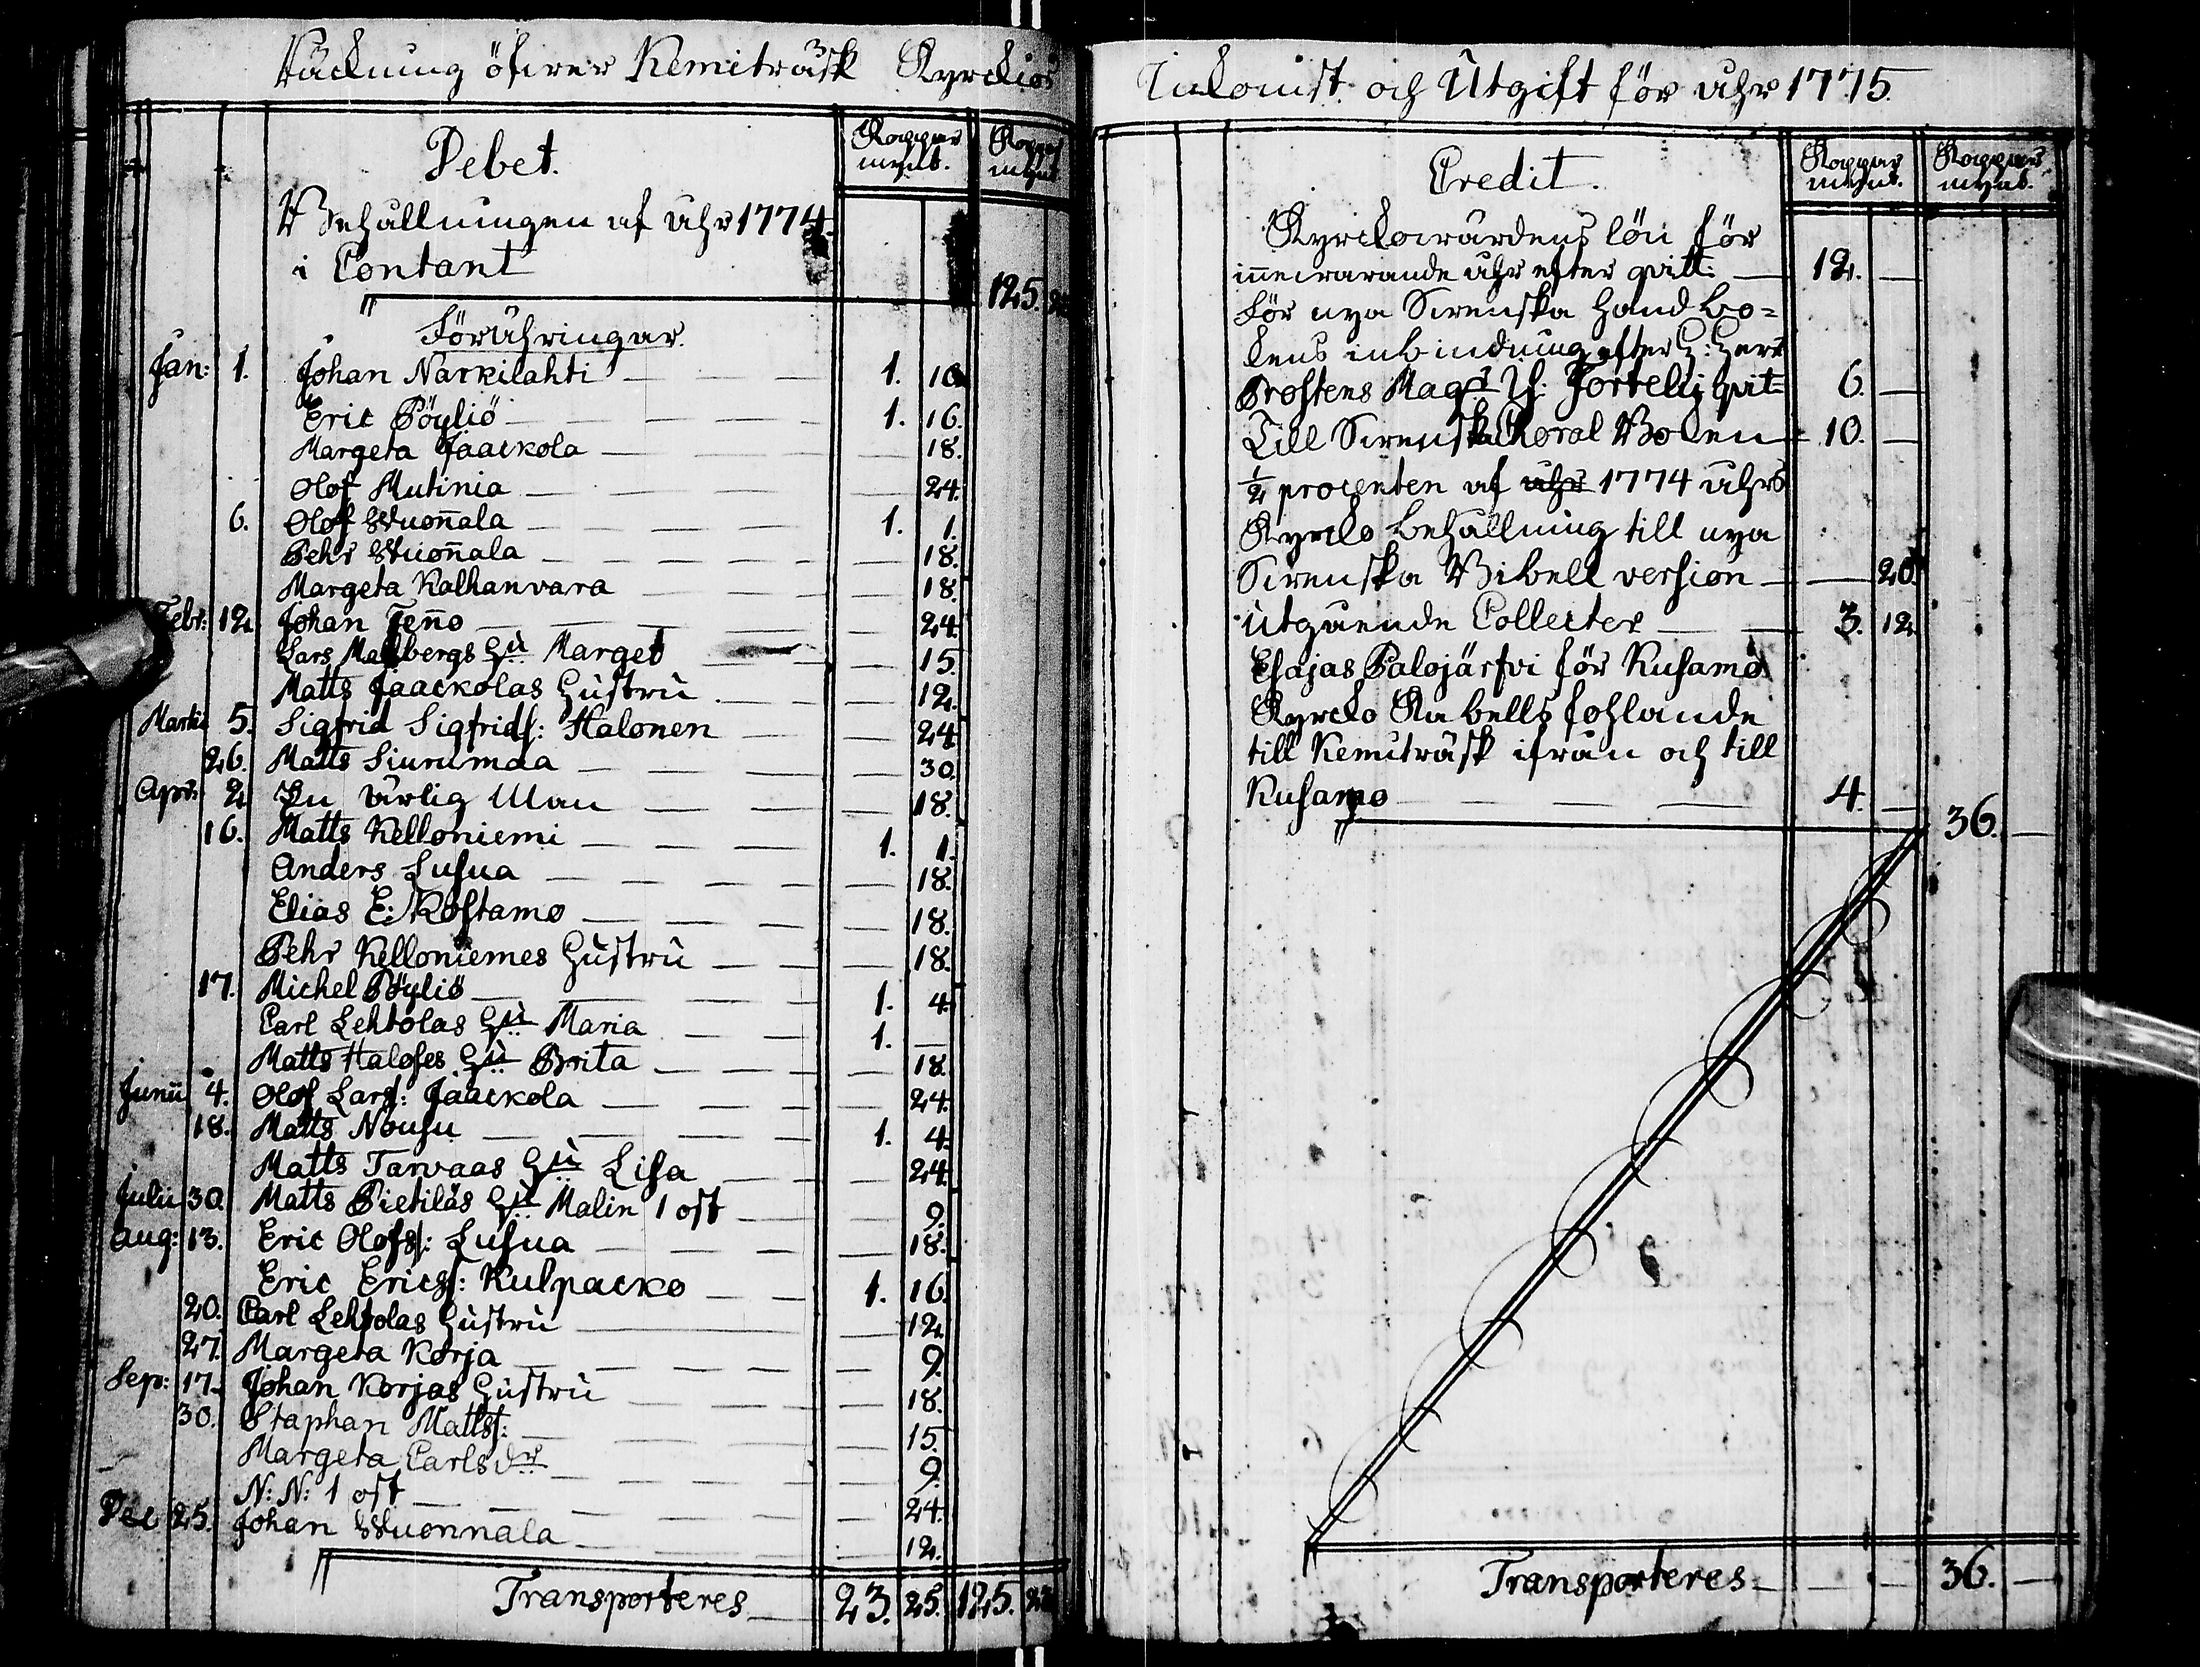 Räckning öfwer Kemiträsk Kyrckios
Debet. Koppar mynt. Koppar mynt
Behållningen af åhr 1774
i Contant 125.
Förähringar.
Jan: 1. Johan Narkilahti 1. 10
Eric Pöyliö 1. 16.
Margeta Jaackola 18.
Olof Mutinia 24.
6. Olof Wuoñala 1. 1.
Pehr Wuoñala 18.
Margeta Kalhanvara 18.
Febr: 12. Johan Jeño 24.
Lars Mallbergs Hu Marget 15.
Matts Jaackolas Hustru 12.
Martii 5. Sigfrid Sigfrids: Halonen 24.
26. Matts Siurumaa 30.
Apr: 2. En ärlig Man 18.
16. Matts Kelloniemi 1. 1.
Anders Lusua 18.
Elias E: Kostamo 18.
Pehr Kelloniemes Hustru 18.
17. Michel Pöyliö 1. 4.
Carl Lehtolas Hu Maria 1. —
Matts Haloses Hu Brita 18.
Junii 4. Olof Lars: Jaackola 24.
18. Matts Nousu 1. 4.
Matts Tarvaas Hu Lisa 24.
Julii 30. Matts Pietiläs Hu Malin 1 ost 9.
Aug: 13. Eric Olofs: Lusua 18.
Eric Erics: Kulpacko 1. 16.
20. Carl Lehtolas Hustru 12.
27. Margeta Korja 9.
Sep: 17. Johan Korjas Hustru 18.
30. Staphan Matts: 15.
Margeta Carlsdr 9.
N: N: 1 ost 24.
Dec 25. Johan Wuonnala 12.
Transporteres 23. 25. 125.
Inkomst och Utgift för åhr 1775.
Credit. Koppar mynt. Koppar mynt.
Kyrckowärdens lön för
inewarande åhr efter qvitt: 12. —
För nya Swenska Handbo=
kens inbindning efter H: Herr
Prostens Magr Is: Fortelii qvit= 6. —
Till Swenska Choral Boken 10. —
1/2 procenten af åhr 1774 åhrs
Kyrcko behållning till nya
Swenska Bibell version — 20.
Utgående Collecter 3. 12.
Esajas Palojärfvi för Kusamo
Kyrcko Kabells fohlande
till Kemiträsk ifrån och till
Kusamo 4. —
36. —
Transporteres 36. —